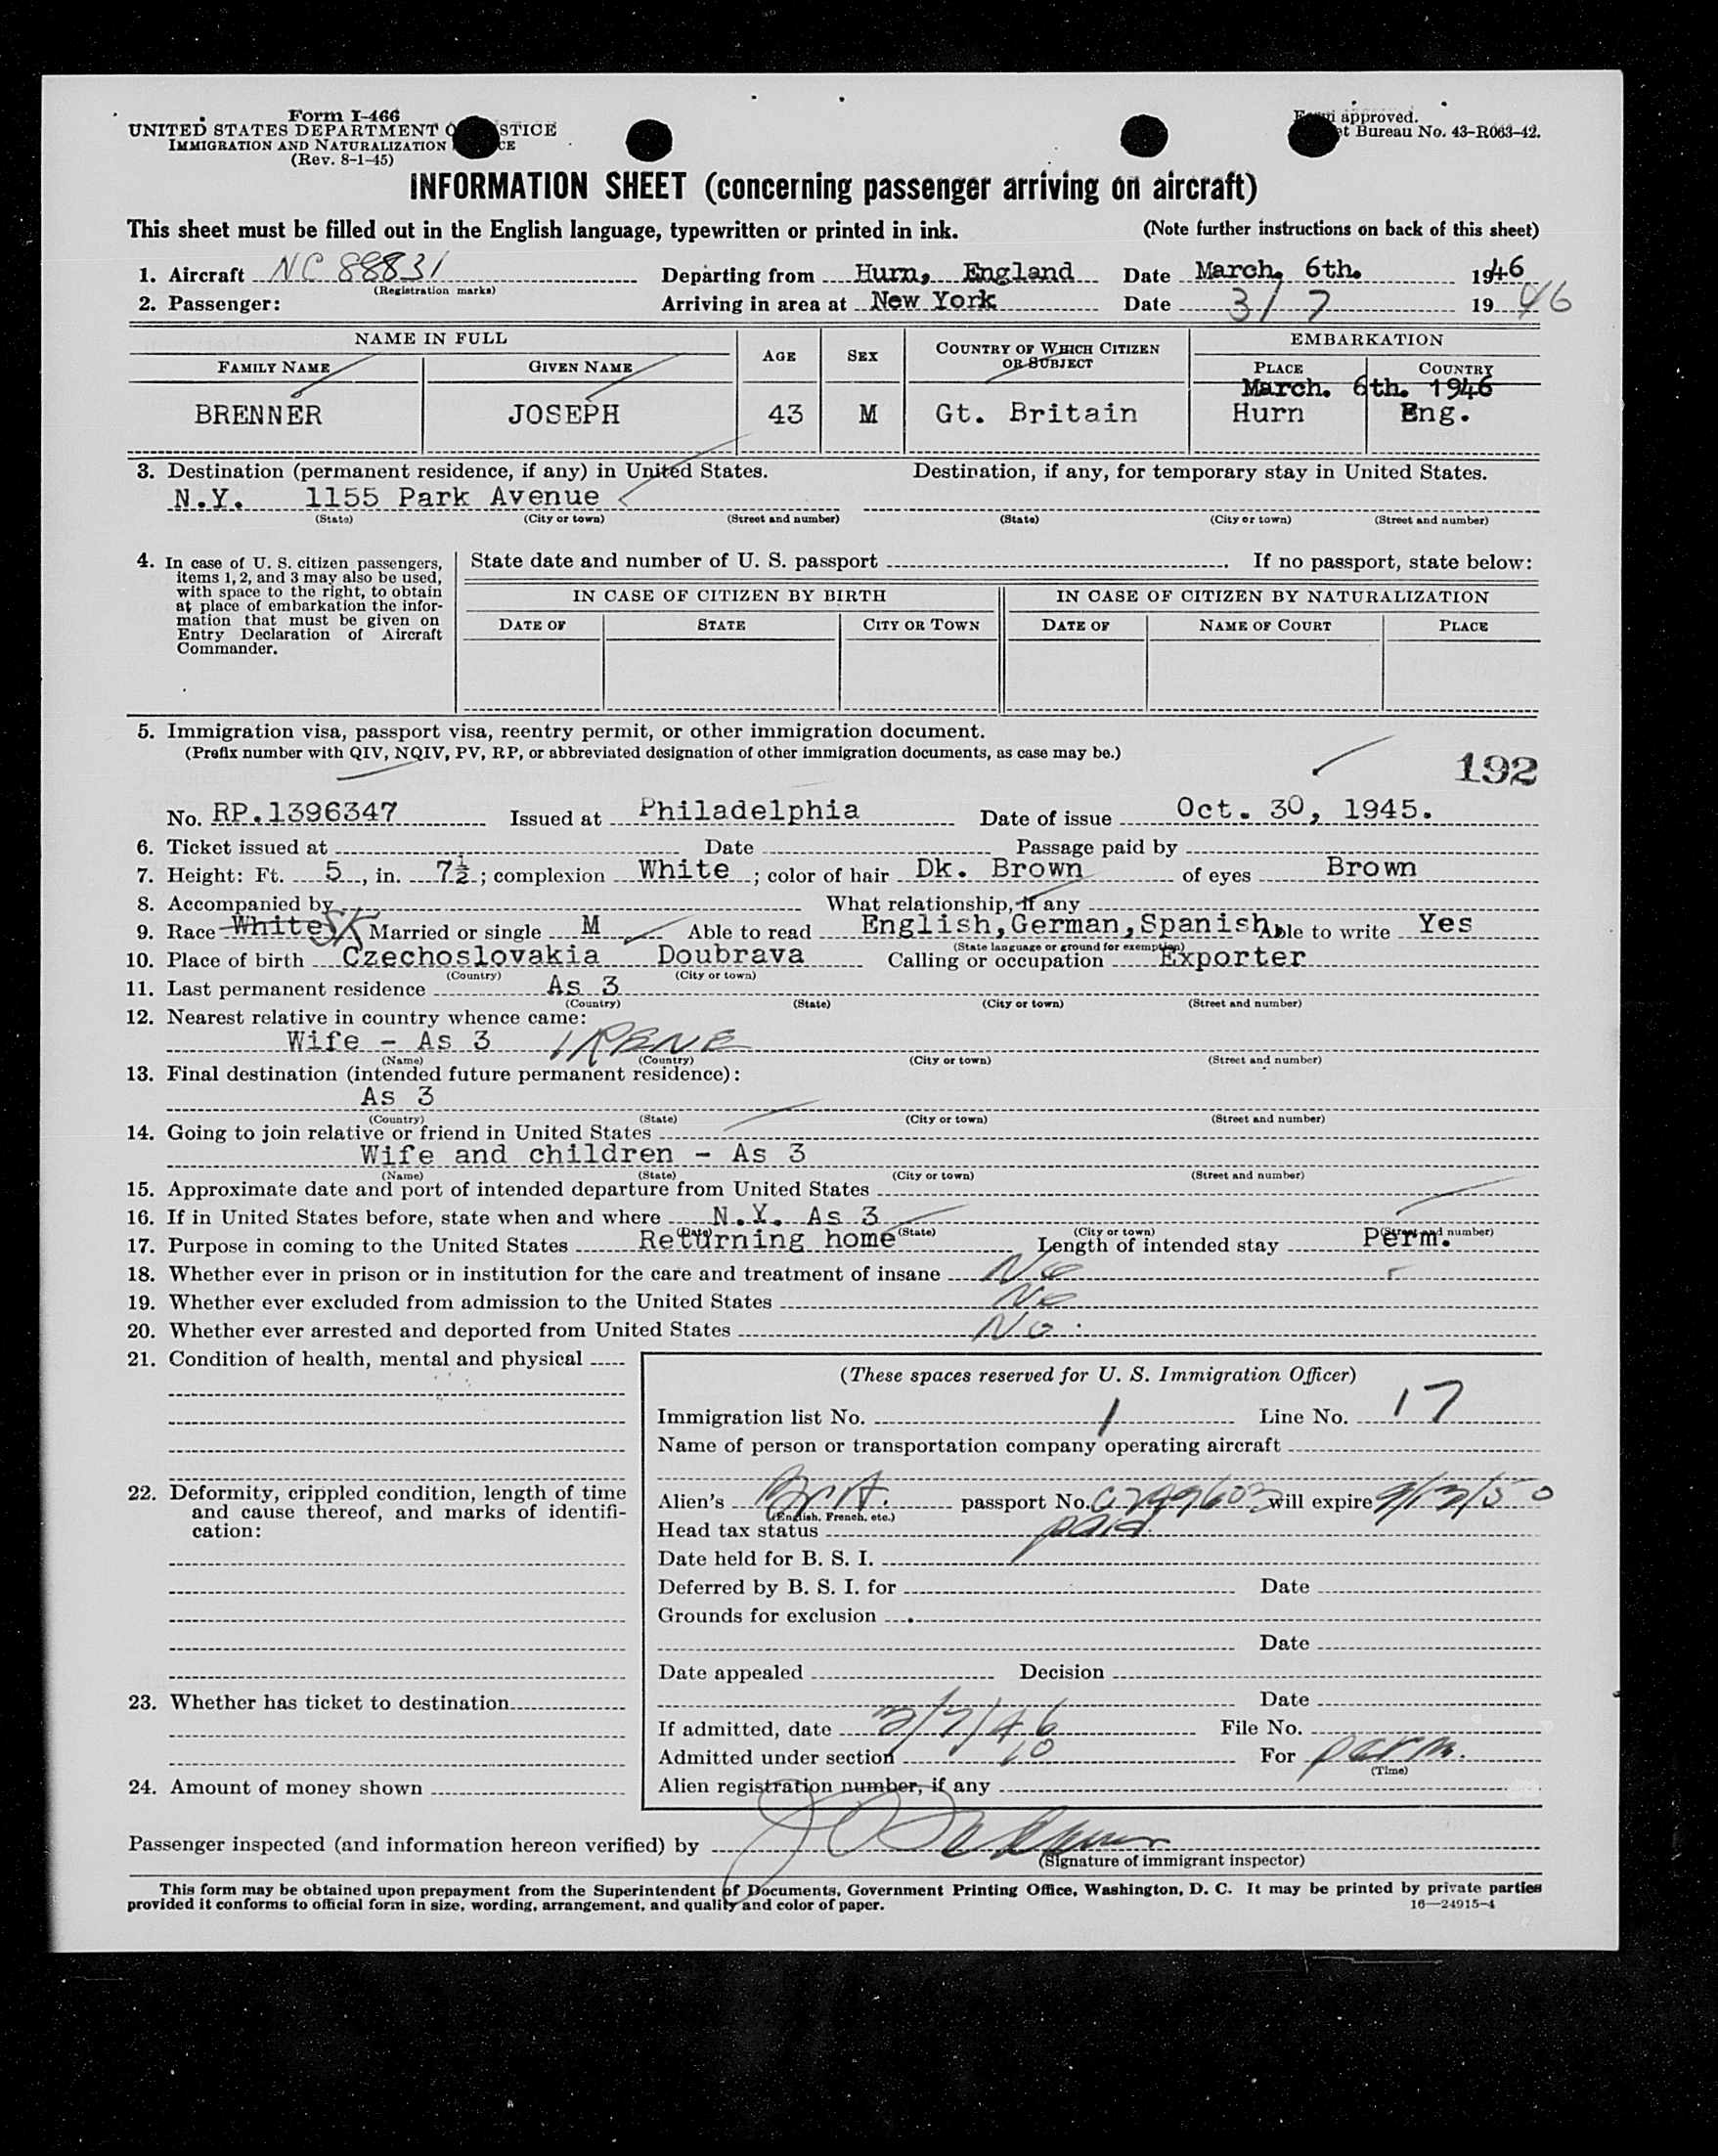 Form I-466
UNITED STATES DEPARTMENT O STICE
IMMIGRATION AND NATURALIZATION CE
(Rev. 8-1-45)
approved.
t Bureau No. 43-R063-42.
INFORMATION SHEET (concerning passenger arriving on aircraft)
This sheet must be filled out in the English language, typewritten or printed in ink. (Note further instructions on back of this sheet)
1. Aircraft NC 88831 Departing from Hurn, England Date March, 6th. 1946
(Registration marks)
2. Passenger: Arriving in area at New York Date 3/7 1946
NAME IN FULL AGE SEX COUNTRY OF WHICH CITIZEN OR SUBJECT EMBARKATION
FAMILY NAME GIVEN NAME PLACE COUNTRY
March. 6th. 1946
BRENNER JOSEPH 43 M Gt. Britain Hurn Eng.
3. Destination (permanent residence, if any) in United States. Destination, if any, for temporary stay in United States.
N.Y. 1155 Park Avenue
(State) (City or town) (Street and number) (State) (City or town) (Street and number)
4. In case of U. S. citizen passengers, items 1, 2, and 3 may also be used, with space to the right, to obtain at place of embarkation the information that must be given on Entry Declaration of Aircraft Commander.
State date and number of U. S. passport . If no passport, state below:
IN CASE OF CITIZEN BY BIRTH IN CASE OF CITIZEN BY NATURALIZATION
DATE OF STATE CITY OR TOWN DATE OF NAME OF COURT PLACE
5. Immigration visa, passport visa, reentry permit, or other immigration document.
(Prefix number with QIV, NQIV, PV, RP, or abbreviated designation of other immigration documents, as case may be.)
192
No. RP.1396347 Issued at Philadelphia Date of issue Oct. 30, 1945.
6. Ticket issued at Date Passage paid by
7. Height: Ft. 5, in. 7½; complexion White; color of hair Dk. Brown of eyes Brown
8. Accompanied by What relationship, if any
9. Race White Married or single M Able to read English,German,Spanish Able to write Yes
(State language or ground for exemption)
10. Place of birth Czechoslovakia Doubrava Calling or occupation Exporter
(Country) (City or town)
11. Last permanent residence As 3
(Country) (State) (City or town) (Street and number)
12. Nearest relative in country whence came:
Wife - As 3 IRENE
(Name) (Country) (City or town) (Street and number)
13. Final destination (intended future permanent residence):
As 3
(Country) (State) (City or town) (Street and number)
14. Going to join relative or friend in United States
Wife and children - As 3
(Name) (State) (City or town) (Street and number)
15. Approximate date and port of intended departure from United States
16. If in United States before, state when and where N.Y. As 3
(Date) (State) (City or town) (Street and number)
17. Purpose in coming to the United States Returning home Length of intended stay Perm.
18. Whether ever in prison or in institution for the care and treatment of insane No
19. Whether ever excluded from admission to the United States No
20. Whether ever arrested and deported from United States No.
21. Condition of health, mental and physical
22. Deformity, crippled condition, length of time and cause thereof, and marks of identification:
23. Whether has ticket to destination
24. Amount of money shown
(These spaces reserved for U. S. Immigration Officer)
Immigration list No. 1 Line No. 17
Name of person or transportation company operating aircraft
Alien's Brit. passport No. will expire 9/13/50
(English, French, etc.)
Head tax status paid.
Date held for B. S. I.
Deferred by B. S. I. for Date
Grounds for exclusion
Date
Date appealed Decision
Date
If admitted, date 3/7/46 File No.
Admitted under section 10 For perm.
(Time)
Alien registration number, if any
Passenger inspected (and information hereon verified) by
(Signature of immigrant inspector)
This form may be obtained upon prepayment from the Superintendent of Documents, Government Printing Office, Washington, D. C. It may be printed by private parties
provided it conforms to official form in size, wording, arrangement, and quality and color of paper.
16—24915-4